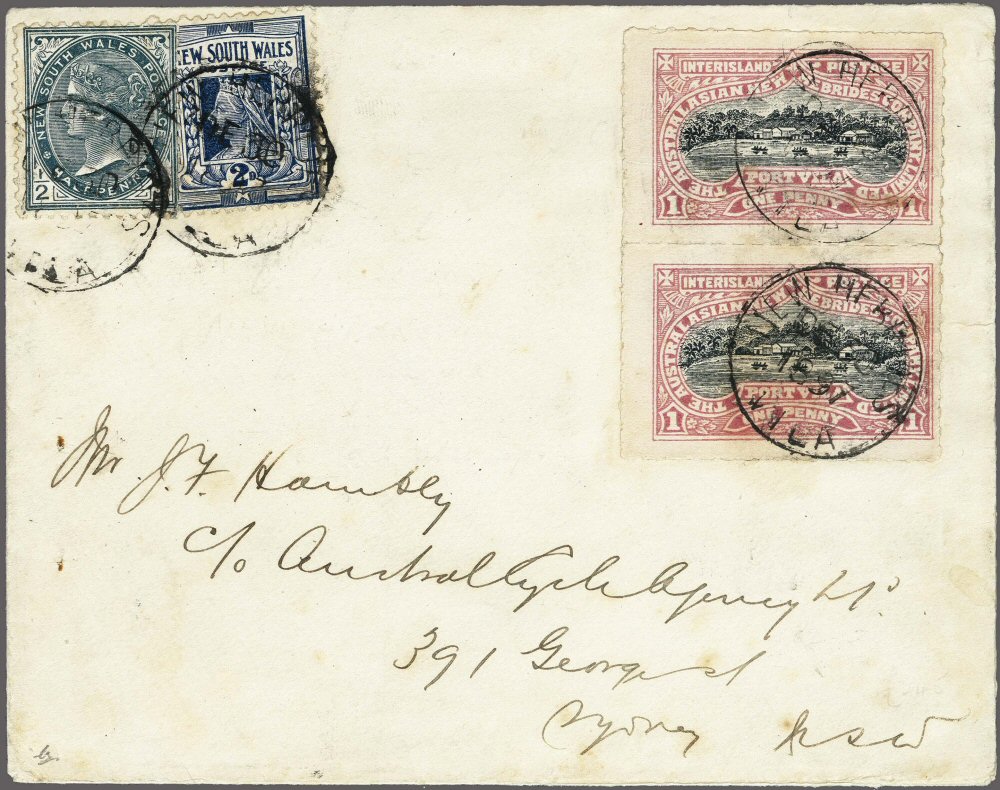 NEW SOUTH WALES POSTAGE
HALFPENNY
1/2
NEW SOUTH WALES
2D
VILA
INTERISLAND POSTAGE
THE AUSTRALASIAN NEW HEBRIDES COMPANY LIMITED
PORT VILA
1 ONE PENNY 1
NEW HEBRIDES
VILA
INTERISLAND POSTAGE
THE AUSTRALASIAN NEW HEBRIDES COMPANY LIMITED
PORT VILA
1 ONE PENNY 1
NEW HEBRIDES
DE
97
VILA
Mr J. F. Hambly
c/o Austral Cycle Agency Ld
391 George st
Sydney NSW